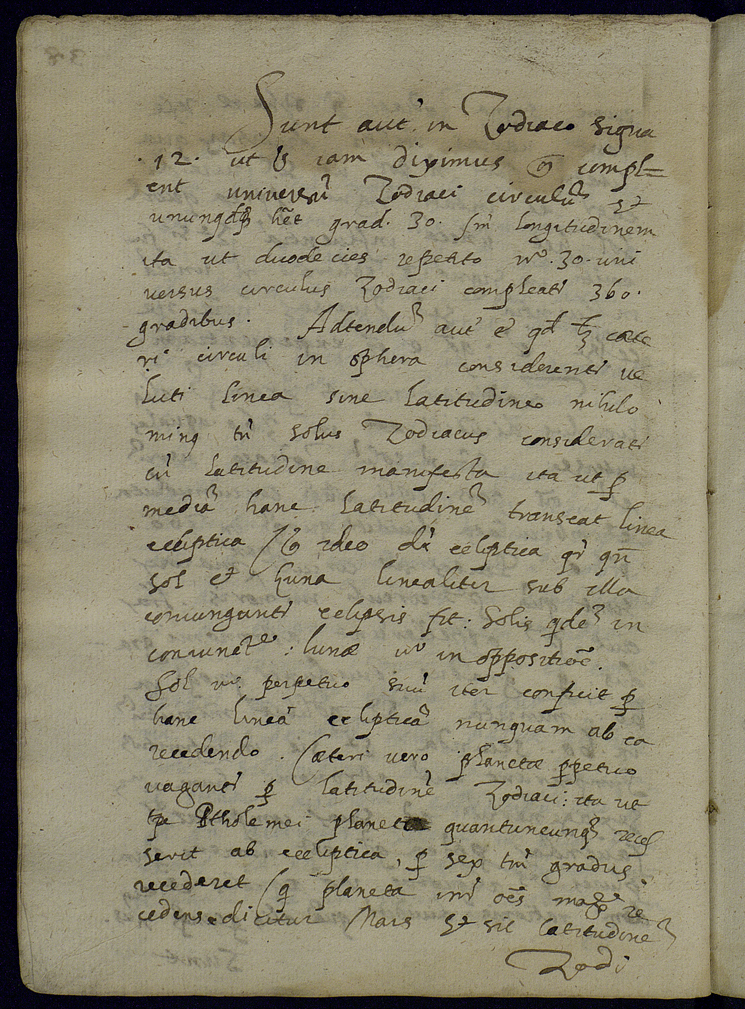 Sunt aut' in Zodiaco signa
·12· ut iam diximus compl=
ent universũ Zodiaci circulũ et
unumqdq hẽt grad. 30. sm̃ longitudinem
ita ut duodecies repetito nº. 30. uni
versus circulus Zodiaci compleatr 360.
gradibus. Adtendũ aut' ẽ qd cæte
ri circuli in sphera considerentr ve
luti linea sine latitudine nihilo
minq tñ solus Zodiacus consideratr
cũ latitudine manifesta ita ut p
mediã hanc latitudinẽ transeat linea
ecliptica et ideo dr ecliptica qr qñ
sol et Luna linealiter sub illa
coniunguntr eclipsis fit: Solis qdẽ in
coniunctõe: lunæ vº in oppositiõe.
Sol vº perpetuo suũ iter conficit p
hanc lineã eclipticã nunquam ab ea
recedendo. Cæteri vero planetæ ppetuo
vagantr p latitudinẽ Zodiaci: ita ut
tpe Ptholemei planeta quantuncunq reces
serit ab ecliptica, p sex tm̃ gradus
recederet (qi planeta intr oẽs magẽ re
cedens dicitur Mars Et sic latitudinẽ
Zodi